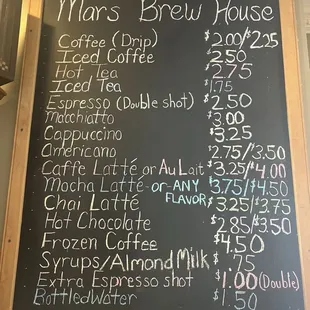 Mars Brew House
Coffee (Drip) $2.00/$2.25
Iced Coffee $2.50
Hot Tea $2.75
Iced Tea $1.75
Espresso (Double shot) $2.50
Macchiatto $3.00
Cappuccino $3.25
Americano $2.75/$3.50
Caffe Latté or Au Lait $3.25/$4.00
Mocha Latté -or-ANY FLAVOR $3.75/$4.50
Chai Latté $3.25/$3.75
Hot Chocolate $2.85/$3.50
Frozen Coffee $4.50
Syrups/Almond Milk $.75
Extra Espresso shot $1.00 (Double)
Bottled Water $1.50